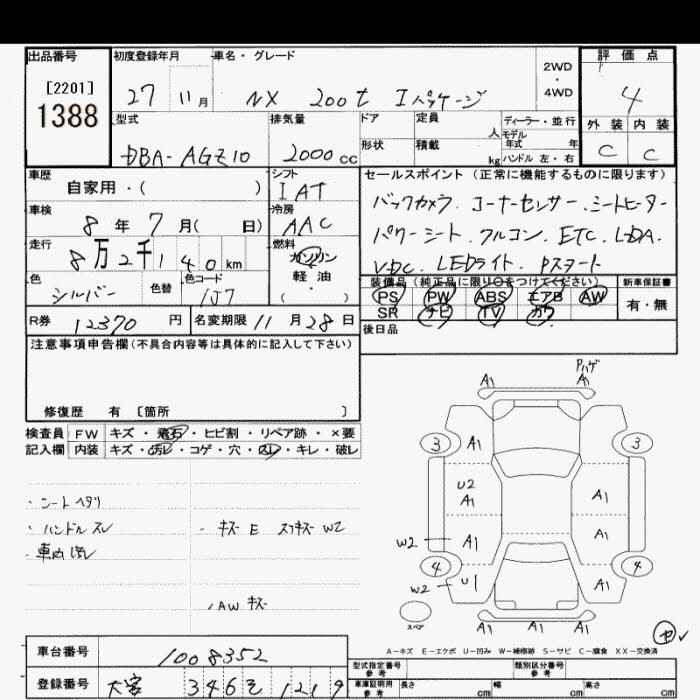 出品番号 初度登録年月 車名・グレード 2WD・4WD 評価点
[2201]
1388
27 11月 NX 200t Iパッケージ 4
外装 内装
C C
型式 排気量 ドア 定員 人 ディーラー・並行
モデル年式 年
形状 積載 kg ハンドル 左・右
DBA-AGZ10 2000cc
車歴 シフト セールスポイント(正常に機能するものに限ります)
自家用・( ) IAT
バックカメラ.コーナーセンサー.シートヒーター
車検 冷房
8年7月( 日) AAC
パワーシート.フルコン.ETC.LDA.
走行 燃料
8万2千140km ガソリン
軽油
VDC.LEDライト.Pスタート
色 色替 色コード
シルバー 1J7
装備品(純正品に限り○をつけてください) 新車保証書
PS PW ABS エアB AW 有・無
SR ナビ TV カワ
R券 12370円 名変期限 11月28日
後日品
注意事項申告欄(不具合内容等は具体的に記入して下さい)
修復歴 有 〔箇所 〕
検査員 FW キズ・飛石・ヒビ割・リペア跡・×要
記入欄 内装 キズ・汚レ・コゲ・穴・スレ・キレ・破レ
・シートヘタリ
・ハンドルスレ
・車内汚レ
・キズE スリキズW2
・AWキズ
A1 Pハゲ
A1
3 A1 3
U2
A1 A1
W2 A1 A1
4 4
W2 U1 A1
スペア
A1 A1 A1
A-キズ E-エクボ U-凹み W-補修跡 S-サビ C-腐食 XX-交換済
車台番号 1008352
型式指定番号 参考 類別区分番号 参考
登録番号 大宮 346 そ 1219
車庫証明用 参考 長さ cm 幅 cm 高さ cm